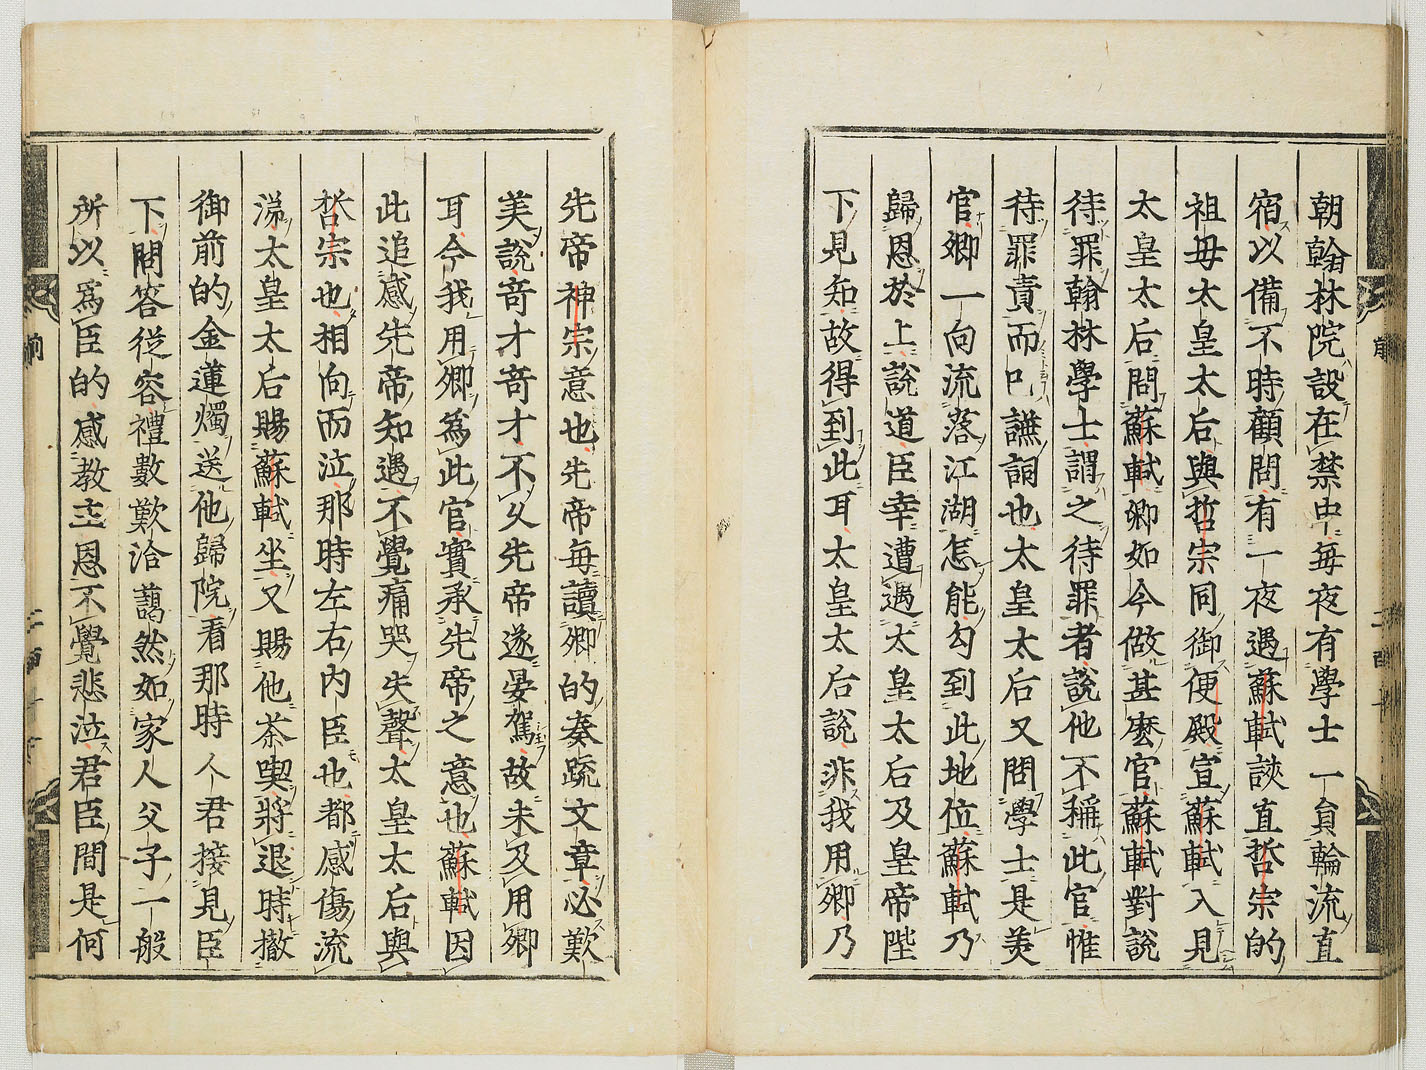 朝翰林院設在禁中每夜有學士一員輪流直
宿以備不時顧問有一夜遇蘇軾該直哲宗的
祖母太皇太后與哲宗同御便殿宣蘇軾入見
太皇太后問蘇軾卿如今做甚麼官蘇軾對說
待罪翰林學士謂之待罪者說他不稱此官惟
待罪責而已謙詞也太皇太后又問學士是美
官卿一向流落江湖怎能勾到此地位蘇軾乃
歸恩於上說道臣幸遭遇太皇太后及皇帝陛
下見知故得到此耳太皇太后說非我用卿乃
先帝神宗意也先帝每讀卿的奏疏文章必歎
美說奇才奇才不久先帝遂晏駕故未及用卿
耳今我用卿為此官實承先帝之意也蘇軾因
此追感先帝知遇不覺痛哭失聲太皇太后與
哲宗也相向而泣那時左右內臣也都感傷流
涕太皇太后賜蘇軾坐又賜他茶喫將退時撤
御前的金蓮燭送他歸院看那時人君接見臣
下問答從容禮數歎洽藹然如家人父子一般
所以為臣的感教主恩不覺悲泣君臣間是何